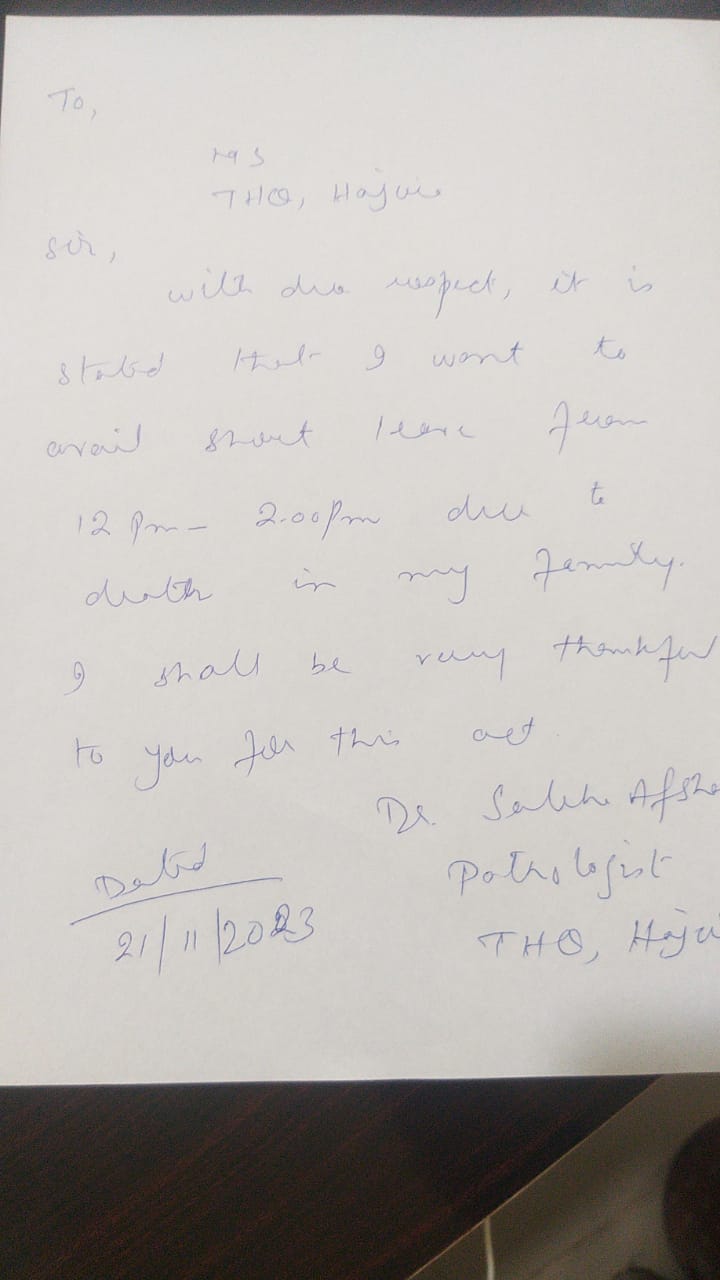 To,
MS
THQ, Hajvi
Sir,
with due respect, it is
stated that I want to
avail short leave from
12 Pm - 2.00 Pm due to
death in my family.
I shall be very thankful
to you for this act.
Dr. Afsha
Pathologist
THQ,
Dated
21/11/2023